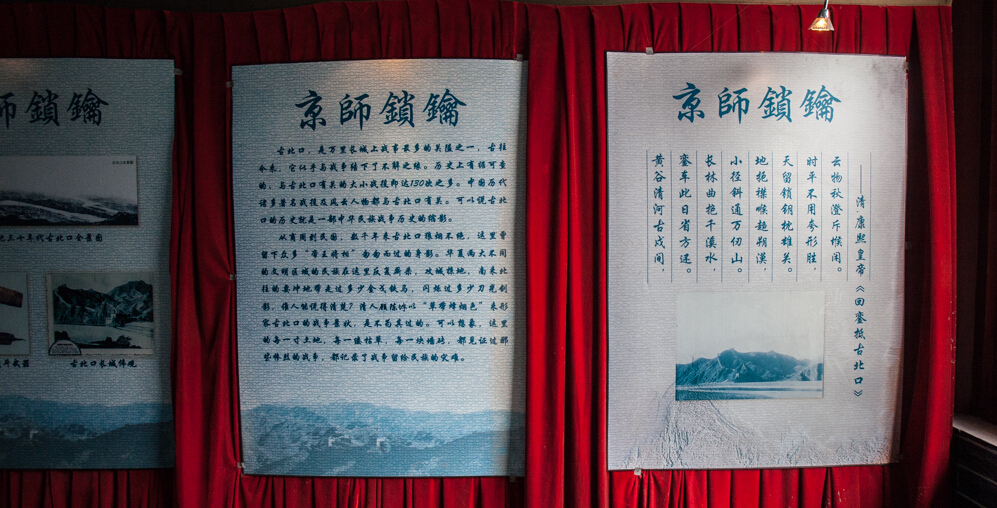 師鎖鑰
三十年代古北口全景图
古北口长城伟观
京師鎖鑰
古北口，是万里长城上战事最多的关隘之一，古往
今来，它似乎与战争结下了不解之缘。历史上有据可查
的，与古北口有关的大小战役即达130次之多。中国历代
诸多著名战役及风云人物都与古北口有关。可以说古北
口的历史就是一部中华民族战争历史的缩影。
从商周到民国，数千年来古北口狼烟不绝，这里曾
留下众多“帝王将相”匆匆而过的身影。华夏两大不同
的文明区域的民族在这里反复厮杀，攻城掠地，南来北
往的要冲地带走过多少金戈铁马，闪烁过多少刀光剑
影，谁人能说得清楚？清人顾陈垿以“草带烽烟色”来形
容古北口的战争景状，是不为其过的。可以想象，这里
的每一寸土地，每一墩枯草，每一块墙砖，都见证过那
些惨烈的战争，都记录了战争留给民族的灾难。
京師鎖鑰
黄谷清河古戍间，
銮车此日省方还。
长林曲抱千溪水，
小径斜通万仞山。
地扼襟喉趋朔漠，
天留锁钥枕雄关。
时平不用夸形胜，
云物秋澄斥堠闲。
——清康熙皇帝《回銮抵古北口》